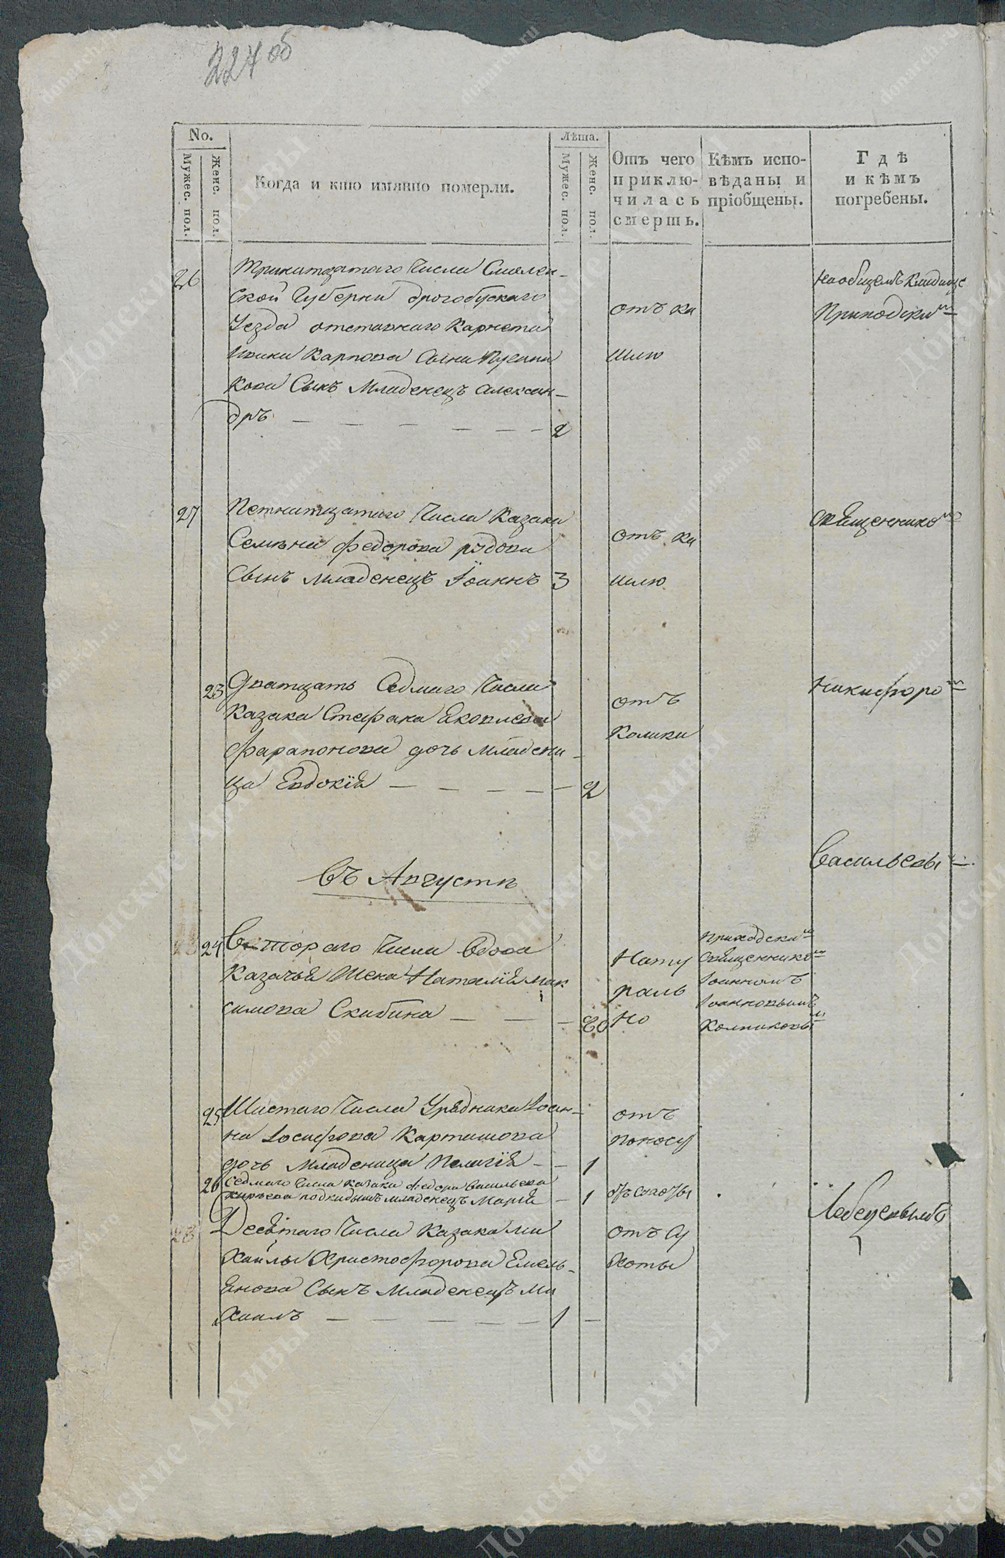 227 об
No.
Мужес. пол.
Женс. пол.
Когда и кто имянно померли.
Лѣта.
Мужес. пол.
Женс. пол.
Отъ чего
приклю-
чилась
смерть.
Кѣмъ испо-
вѣданы и
пріобщены.
Гдѣ
и кѣмъ
погребены.
26
Тринатцатаго Числа Смолен-
ской Губерни дрогобускаго
Уезда отставнаго Карнета
Карпова Сына
кова Сынъ Младенецъ Алексан-
дръ 2
отъ ка
шлю
на общемъ кладище
Приходским
27
Петнатцатаго Числа Казака
Семѣна Федорова рудова
Сынъ младенецъ Іоаннъ 3
отъ ка
шлю
священником
23
Дватцать Седмаго Числа
Казака Стефана Яковлева
Фарапонова дочь младени-
ца Евдокія 2
отъ
Колики
Никифоро
Въ Августѣ
24
Втораго Числа вдова
Казачья Жена Наталія мак
симова Скибина 80
Нату
раль
но
Приходским
Священником
Іоанномъ
Іоанновымъ
Колпиковы
Васильевы
25
Шестаго Числа Урядника Іоан-
на Іосифова Карташова
дочь Младеница Пелагія 1
отъ
поносу
26
Седмаго Числа Казака Федора Васильева
Кирѣева подкидышъ младенецъ Марія 1
отъ
Десятаго Числа Казака ми
хайлы Христофорова Емель-
янова Сынъ Младенецъ Ми
хаилъ 1
отъ Су
хоты
Лебедевымъ